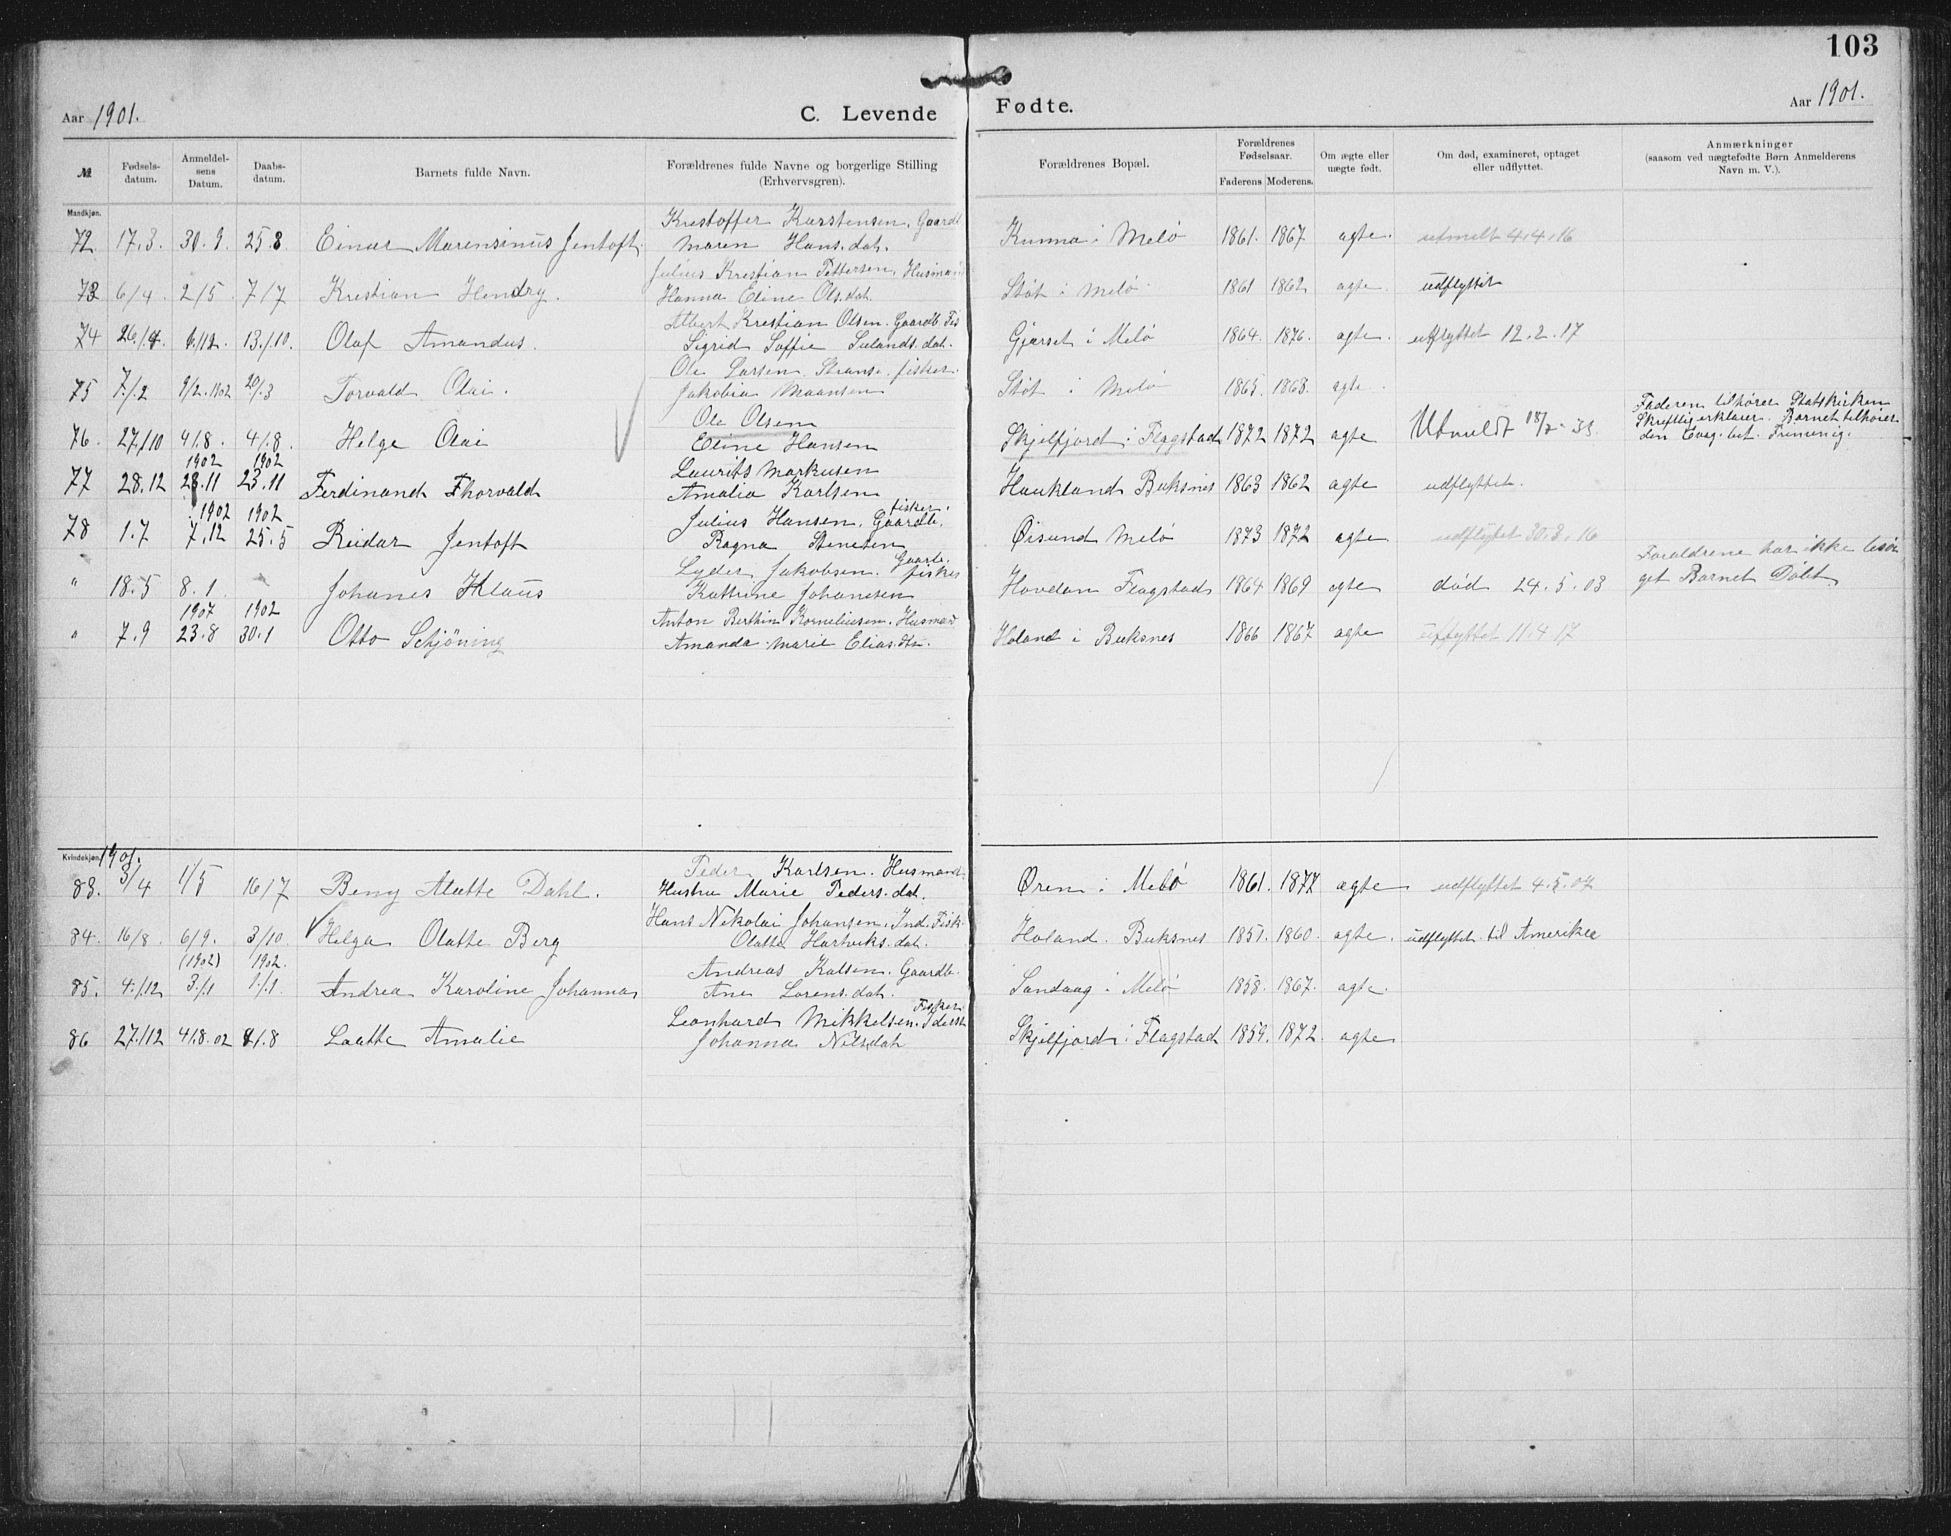 103
Aar 1901.
C. Levende Fødte.
Aar 1901.
№
Fødselsdatum.
Anmeldelsens Datum.
Daabsdatum.
Barnets fulde Navn.
Forældrenes fulde Navne og borgerlige Stilling (Erhvervsgren).
Forældrenes Bopæl.
Forældrenes Fødselsaar.
Faderens Moderens.
Om ægte eller uægte født.
Om død, examineret, optaget eller udflyttet.
Anmærkninger (saasom ved uægtefødte Børn Anmelderens Navn m. V.).
Mandkjøn.
Krestoffer Karstensen, Gaardb
72 17.3. 30.9. 25.8 Einar Marensinus Jentoft. Maren Hans.dat. Kunna i Melø 1861. 1867 agte. utmelt 4.4.16
Julius Krestian Pettersen, Husmand
73 6/4. 2/5. 7/7 Krestian Hendry. Hanna Eline Ols.dat. Støt i Melø. 1861 1862 agte. udflyttet
Albert Krestian Olsen. Gaardb. Fis
74 26./9. 6/12. 13./10. Olaf Amandus. Sigrid Soffie Sulands.dat. Gjerset i Melø 1864. 1876. agte. utflyttet 12.2.17
Ole Larsen. fisker.
75 7./2 9/2.1902 20/3 Torvald Olai. Jakobia Maansen Støt i Melø 1865. 1868. agte.
Ole Olsen
76. 27/10 4/8. 4/8. Helge Olai Eline Hansen Skjelfjord i Flagstad 1872 1872 agte Utmeldt 18/2-33
Faderen tilhører Statskirken
Skriftlig erklærer. Barnet tilhører
den Evag. lut. Frimenig.
1902 1902 Laurits Markusen
77 28.12 23.11 23.11 Ferdinand Thorvald Amalia Karlsen Haukland Buksnes 1863 1862 agte udflyttet.
1902 1902 Julius Hansen. Gaardb. fisker.
78 1.7 7.12 25.5 Reidar Jentoft Ragna Stensen Øisund Melø 1873 1872 agte udflyttet 30.3.16
Lyder Jakobsen. Gaarb. fisker
" 18.5 8.1 Johanes Klaus Kattrine Johansen Hovdan Flagstad 1864 1869 agte død 24.5.03
Foraldrene har ikke besør
get Barnet Døbt
1907 1902 Anton Berthin Korneliusen. Husmand
" 7.9 23.8 30.1 Otto Schjøning Amanda Marie Elias.dtr. Holand i Buksnes 1866 1867 agte utflyttet 11.4.17
Kvindekjøn 1901.
Peder Karlsen. Husmand.
83. 3/4 1/5 16/7 Beny Alette Dahl. Hustru Marie Peders.dat. Øren i Melø 1861. 1877 agte udflyttet 4.5.07
Hans Nikolai Johansen, Ind. Fisk.
84. 16/8. 6/9. 3/10. Helga Olatte Berg Olatte Hartviks.dat. Holand. Buksnes 1857. 1860. agte. udflyttet til Amerika
(1902) 1902. Andreas Kalsen. Gaardb.
85. 4./12 3./1 1./1 Andrea Karoline Johanna Ane Lorens.dat. Sandaag i Melø 1858. 1867. agte.
Leonhard Mikkelsen. Fisker.
86 27./12 4/8.02 4/8 Laatte Amalie Johanna Nilsdat Skjelfjord i Flagstad 1859. 1872. agte